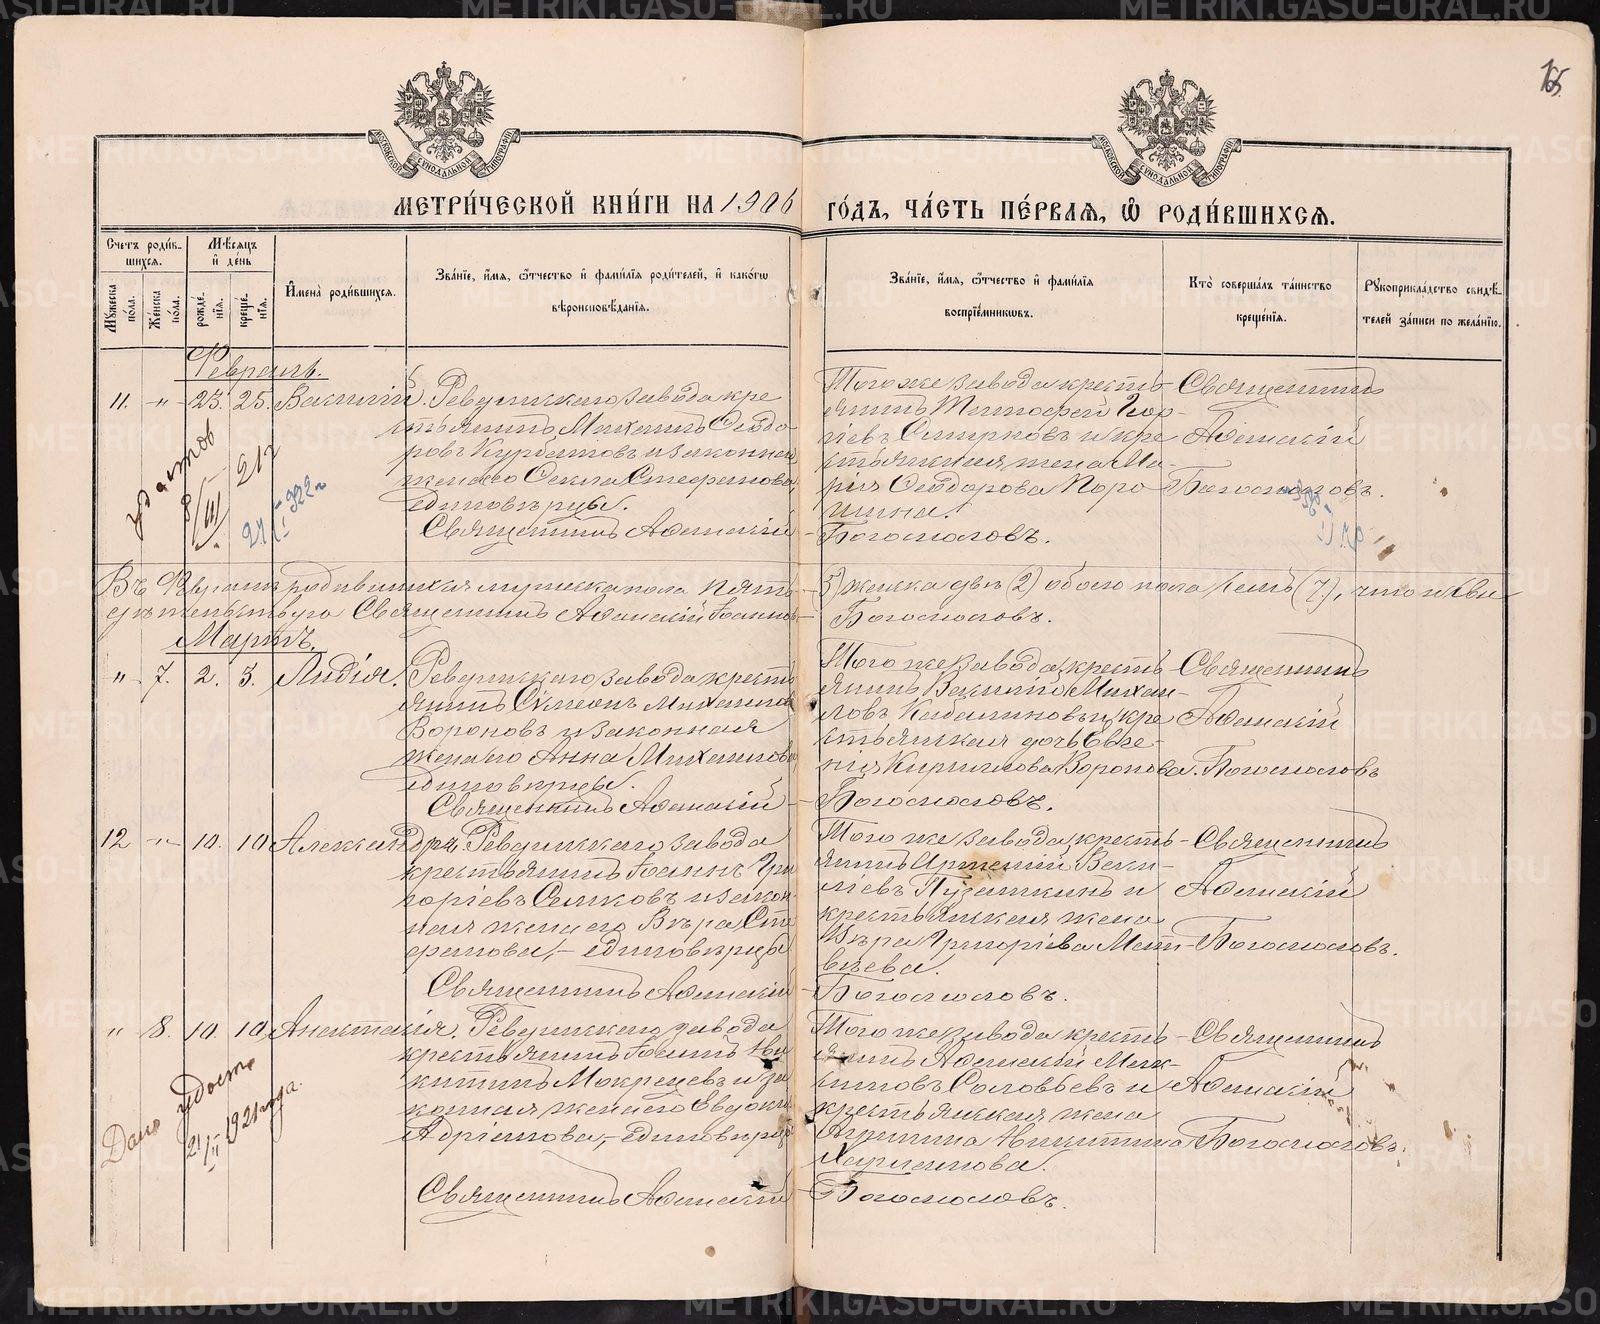 METRIKI.GASO-URAL.RU
165
МОСКОВСКОЙ СѴНОДАЛЬНОЙ ТИПОГРАФІИ
МОСКОВСКОЙ СѴНОДАЛЬНОЙ ТИПОГРАФІИ
МЕТРИ́ЧЕСКОЙ КНИ́ГИ НА 1906 ГО́ДЪ, ЧА́СТЬ ПЕ́РВАЯ, Ѡ҆ РОДИ́ВШИХСЯ.
Счетъ роди́вшихся.
Му́жеска по́ла.
Же́нска по́ла.
Мѣ́сяцъ и҆ де́нь
рожде́нїя.
креще́нїя.
И҆мена̀ роди́вшихся.
Зва́нїе, и҆́мя, ѻ҆́тчество и҆ фами́лїя роди́телей, и҆ како́гѡ
вѣроисповѣ́данїя.
Зва́нїе, и҆́мя, ѻ҆́тчество и҆ фами́лїя
воспрїе́мникѡвъ.
Кто̀ соверша́лъ та́инство
креще́нїя.
Рꙋкоприкла́дство свидѣ́телей за́писи по жела́нїю.
Февраль.
11. -"- 23. 25. Василій. Ревдинскаго завода кре
стьянинъ Михаилъ Ѳеодо
ровъ Курбатовъ и законная
жена его Ѳекла Стефанова,
единовѣрцы.
Священникъ Аѳанасій
Тогоже завода кресть-
янинъ Тимоѳей Геор-
гіевъ Смирновъ и кре
стьянская жена Ма-
рія Ѳеодорова Поро
шина.
Богословъ.
Священникъ
Аѳанасій
Богословъ.
8/III 212
24/I 922 г.
Въ Февралѣ родившихся мужска пола пять (5) женска двѣ (2) обоего пола семь (7), что и сви
дѣтельствую Священникъ Аѳанасій Іоанновъ Богословъ.
Мартъ.
" 7. 2. 3. Лидія. Ревдинскаго завода кресть
янинъ Сѵмеонъ Михаиловъ
Вороновъ и законная
жена его Анна Михаилова,
единовѣрцы.
Священникъ Аѳанасій
Тогоже завода кресть
янинъ Василій Михаи-
ловъ Кабалиновъ и кре
стьянская дочь Евге-
нія Кириллова Воронова.
Богословъ.
Священникъ
Аѳанасій
Богословъ
12 -"- 10. 10 Александръ. Ревдинскаго завода
крестьянинъ Іоаннъ Гри
горіевъ и закон
ная жена его Вѣра Сте
фанова, - единовѣрцы
Священникъ Аѳанасій
Тогоже завода кресть-
янинъ Васи-
ліевъ и
крестьянская жена
Вѣра Григоріева Мат-
вѣева.
Богословъ.
Священникъ
Аѳанасій
Богословъ.
" 8. 10. 10. Анастасія. Ревдинскаго завода
крестьянинъ Іоаннъ Ни
китинъ Мокрецевъ и за
конная жена его Евдокія
Адріанова, - единовѣрцы
Священникъ Аѳанасій
Тогоже завода кресть-
янинъ Аѳанасій Мак-
симовъ Соловьевъ и
крестьянская жена
Агрипина Никитина
Харламова.
Богословъ.
Священникъ
Аѳанасій
Богословъ.
Дано удост
21/II 1921 года.